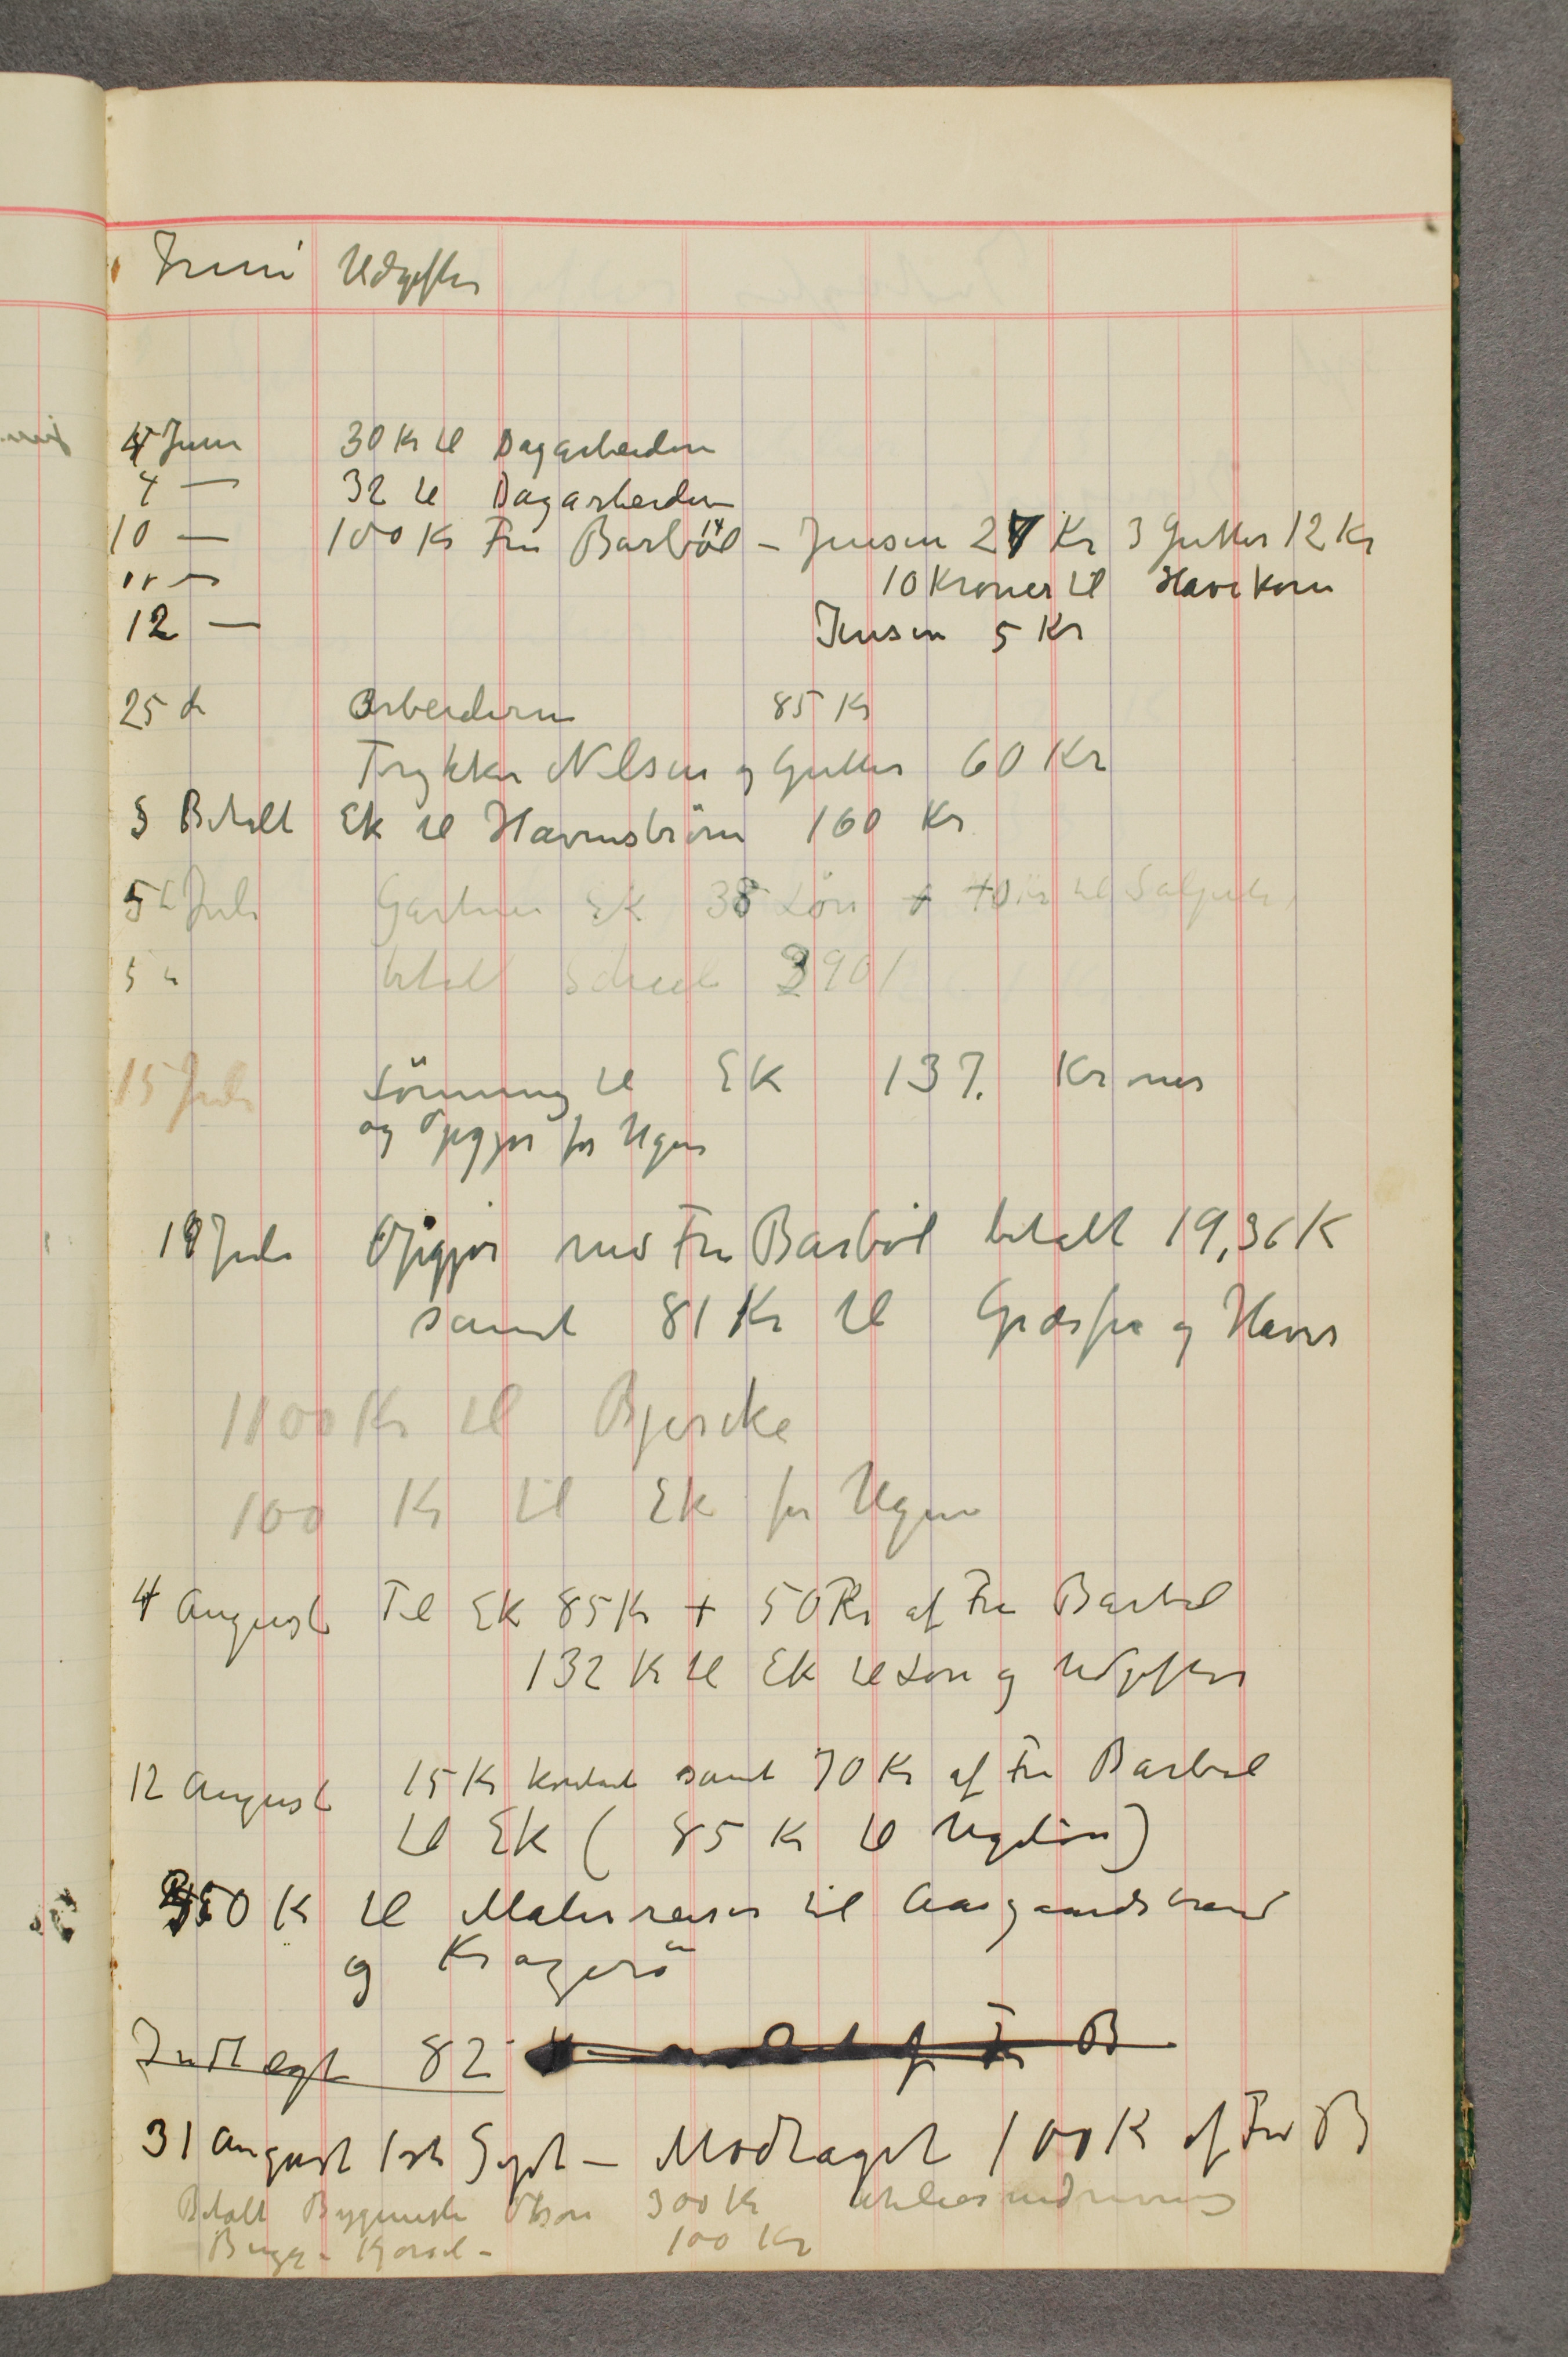 Juni Udgifter
4 Juni 30 Kr til Dagarbeidere
4 — 32 til Dagarbeidere
10 — 100 Kr Fru Barböl – Jensen 27 Kr 3 Gutter 12 Kr
11 — 10 Kroner til Havekorn
12 — Jensen 5 Kr
25 d. Arbeiderne 85 Kr
Trykker Nilsen og Gutter 60 Kr
Betalt Ek til Havnström 160 Kr
5te Juli Gartner Ek 38 Lön + til Salpeter
5 betalt 390
15 Juli Lönning til Ek 137. Kroner
og Opgjör for Ugen
18 Juli Opgjör med Fru Barböl betalt 19,36 K
samt 81 Kr til Græsfrø og Havre
1100 Kr til Bjercke
100 Kr til Ek for Ugen
4 August Til Ek 85 Kr + 50 Kr af Fru Barböl
132 Kr til Ek til Lön og Udgifter
12 August 15 Kr kontant samt 70 Kr af Fru Barböl
til Ek ( 85 Kr til Ugelön)
350 Kr til Malerreiser til Aasgaardstrand
og Kragerö
Indlagt 82 Fr B
31 August 1ste Sept – Modtaget 100 K af Fru B
Betalt Bygmester Olsen 300 Kr
Brygge – Kjørsel – 100 Kr